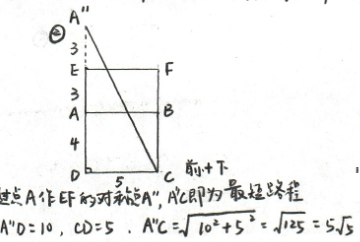 A"
②
3
E F
3
A B
4
D 5 C 前+下
过点A作EF的对称点A", A"C即为最短路程
A"D=10, CD=5. A"C=√10²+5²=√125=5√5